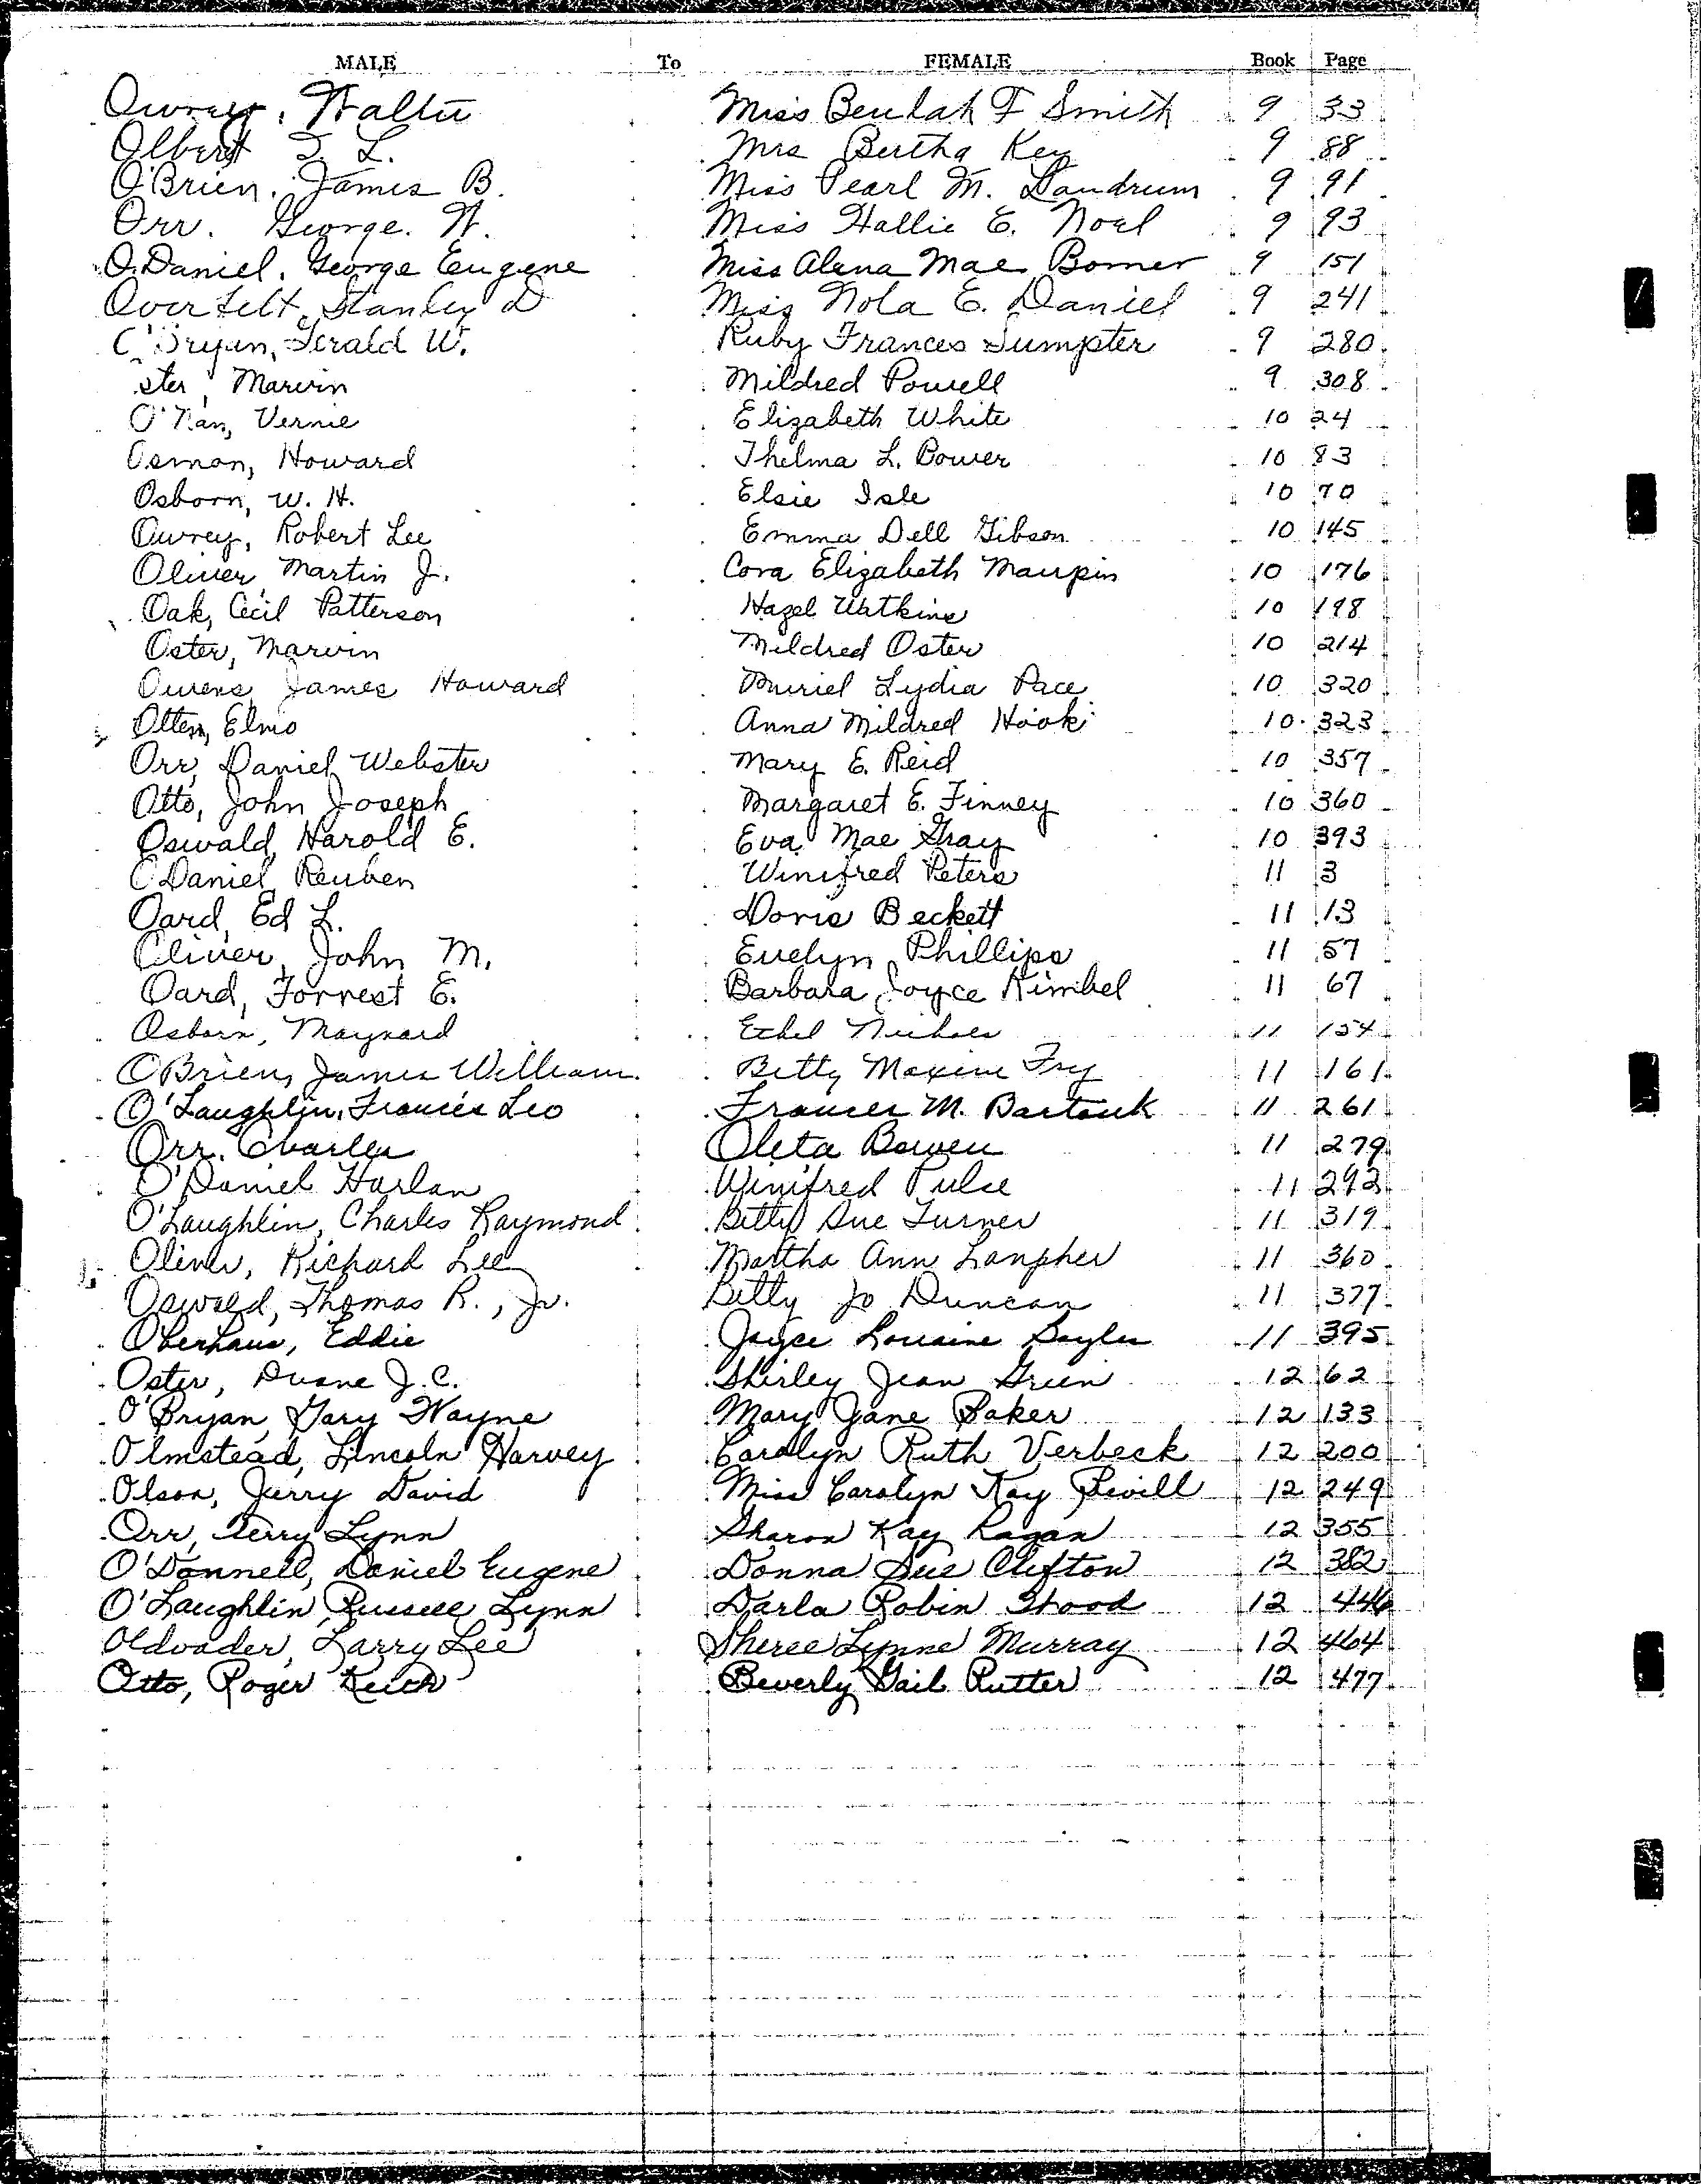 MALE To FEMALE Book Page
Owrey, Walter Miss Beulah F Smith 9 33
Olbert L. Mrs Bertha Key 9 88
O'Brien, James B. Miss Pearl M. Landrum 9 91
Orr. George. W. Miss Hallie E. Noel 9 93
O.Daniel, George Eugene Miss Alena Mae Borner 9 151
Overfelt, Stanley D Miss Nola E. Daniel 9 241
O'Bryan, Gerald W. Ruby Frances Sumpter 9 280
ster, Marvin Mildred Powell 9 308
O'Nan, Vernie Elizabeth White 10 24
Osmon, Howard Thelma L. Bower 10 83
Osborn, W. H. Elsie Isle 10 70
Owrey, Robert Lee Emma Dell Gibson 10 145
Oliver, Martin J. Cora Elizabeth Maupin 10 176
Oak, Cecil Patterson Hazel Watkins 10 198
Oster, Marvin Mildred Oster 10 214
Owens, James Howard Muriel Lydia Pace 10 320
Otten, Elmo Anna Mildred Hook 10 323
Orr, Daniel Webster Mary E. Reid 10 357
Otto, John Joseph Margaret E. Finney 10 360
Oswald, Harold E. Eva Mae Gray 10 393
O Daniel, Reuben Winifred Peters 11 3
Oard, Ed L. Doris Beckett 11 13
Oliver, John M. Evelyn Phillips 11 57
Oard, Forrest E. Barbara Joyce Kimbel 11 67
Osborn, Maynard Ethel Nichols 11 154
O Brien, James William. Betty Maxine Fry 11 161
O'Laughlin, Francis Leo Frances M. 11 261
Orr. Charles Oleta Bowen 11 279
O'Daniel Harlan Winifred Pulse 11 292
O'Laughlin, Charles Raymond Betty Sue Turner 11 319
Oliver, Richard Lee Martha Ann Lanpher 11 360
Oswald, Thomas R., Jr. Betty Jo Duncan 11 377
Oberhaus, Eddie Joyce Lorraine Sayler 11 395
Oster, Duane J.C. Shirley Jean Green 12 62
O'Bryan, Gary Wayne Mary Jane Baker 12 133
Olmstead, Lincoln Harvey Carolyn Ruth Verbeck 12 200
Olson, Jerry David Miss Carolyn Kay Bevill 12 249
Orr, Terry Lynn Sharon Kay Ragan 12 355
O'Donnell, Daniel Eugene Donna Sue Clifton 12 382
O'Laughlin, Russell Lynn Darla Robin Hood 12 446
Oldvader, Larry Lee Sheree Lynne Murray 12 464
Otto, Roger Keith Beverly Gail Rutter 12 477